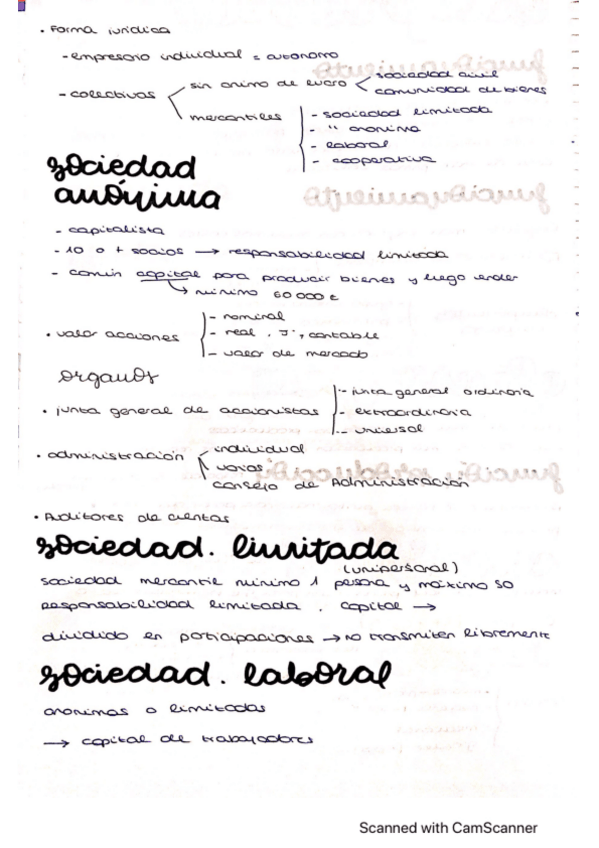 • Forma jurídica
- empresario individual = autonomo
- colectivos
sin animo de lucro
sociedad civil
comunidad de bienes
mercantiles
- sociedad limitada
- " anonima
- laboral
- cooperativa
sociedad
anónima
- capitalista
- 10 o + socios → responsabilidad limitada
- común capital para producir bienes y luego vender
→ minimo 60 000 €
• valor acciones
- nominal
- real, contable
- valor de mercado
organos
• junta general de accionistas
- junta general ordinaria
- extraordinaria
- universal
• administración
individual
varios
consejo de Administración
• Auditores de cuentas
sociedad. limitada
(unipersonal)
sociedad mercantil minimo 1 persona y máximo 50
responsabilidad limitada. capital →
dividido en participaciones → no transmiten libremente
sociedad. laboral
anonimas o limitadas
→ capital de trabajadores
Scanned with CamScanner